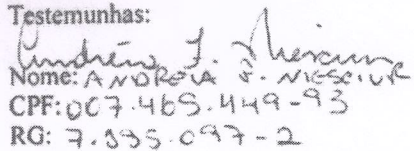 Testemunhas:
Nome: ANDRÉIA F.
CPF: 007.465.449-93
RG: 7.995.097-2